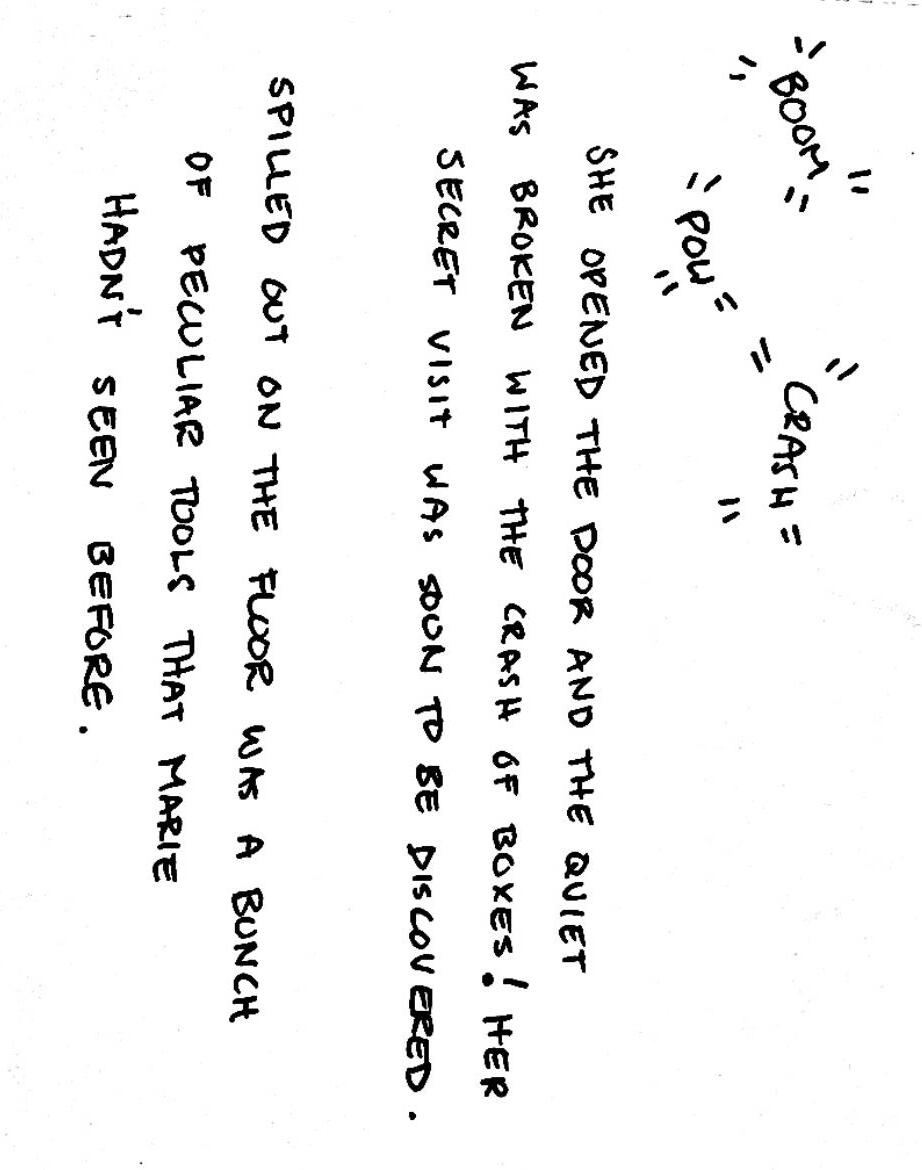 BOOM
POW
CRASH
SHE OPENED THE DOOR AND THE QUIET
WAS BROKEN WITH THE CRASH OF BOXES! HER
SECRET VISIT WAS SOON TO BE DISCOVERED.
SPILLED OUT ON THE FLOOR WAS A BUNCH
OF PECULIAR TOOLS THAT MARIE
HADN'T SEEN BEFORE.